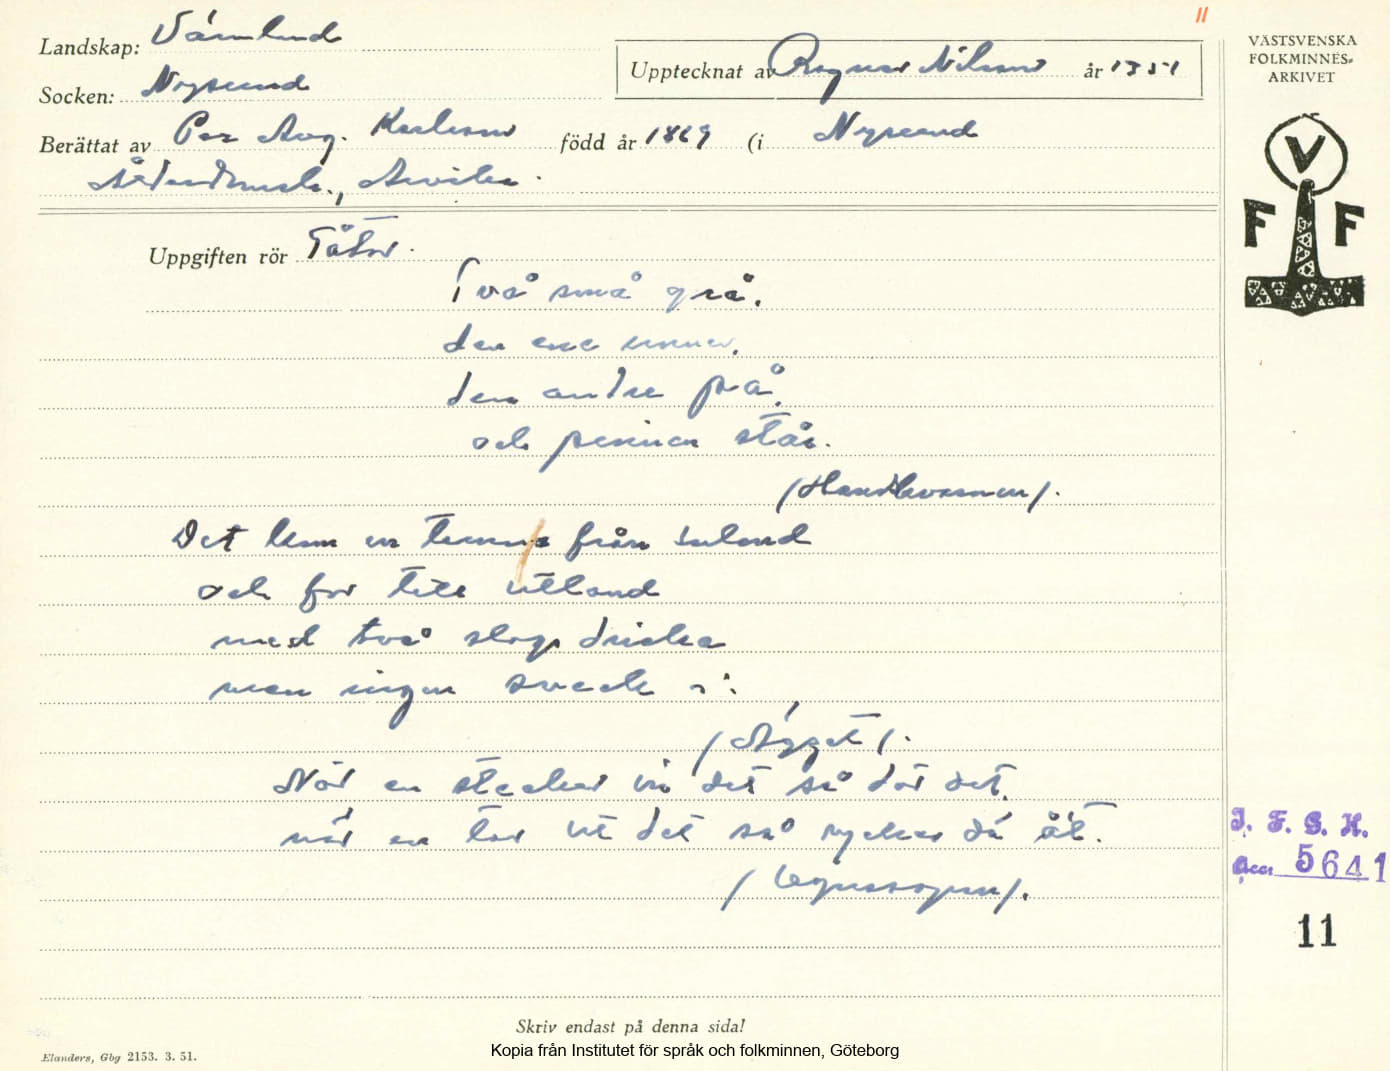 11
Landskap: Värmland
Socken: Nysund
Upptecknat av Ragnar Nilsson år 1951
Berättat av Per Aug. Karlsson född år 1869 (i Nysund
Ålderdomsh., Arvika.
VÄSTSVENSKA
FOLKMINNES-
ARKIVET
V
F F
Uppgiften rör Gåtor.
Två små grå.
den ene unner,
den andre på,
och pinnen står.
(Handkvarnen).
Det kom en tunna från inland
och for till utland
med två slags dricka
men ingen svack i:
(Ägget).
När en sticker in det så dör det,
när en tar ut det så rycker dä åt.
(Ugnssopan).
I. F. G. H.
Acc. 5641
11
Skriv endast på denna sida!
Elanders, Gbg 2153. 3. 51.
Kopia från Institutet för språk och folkminnen, Göteborg